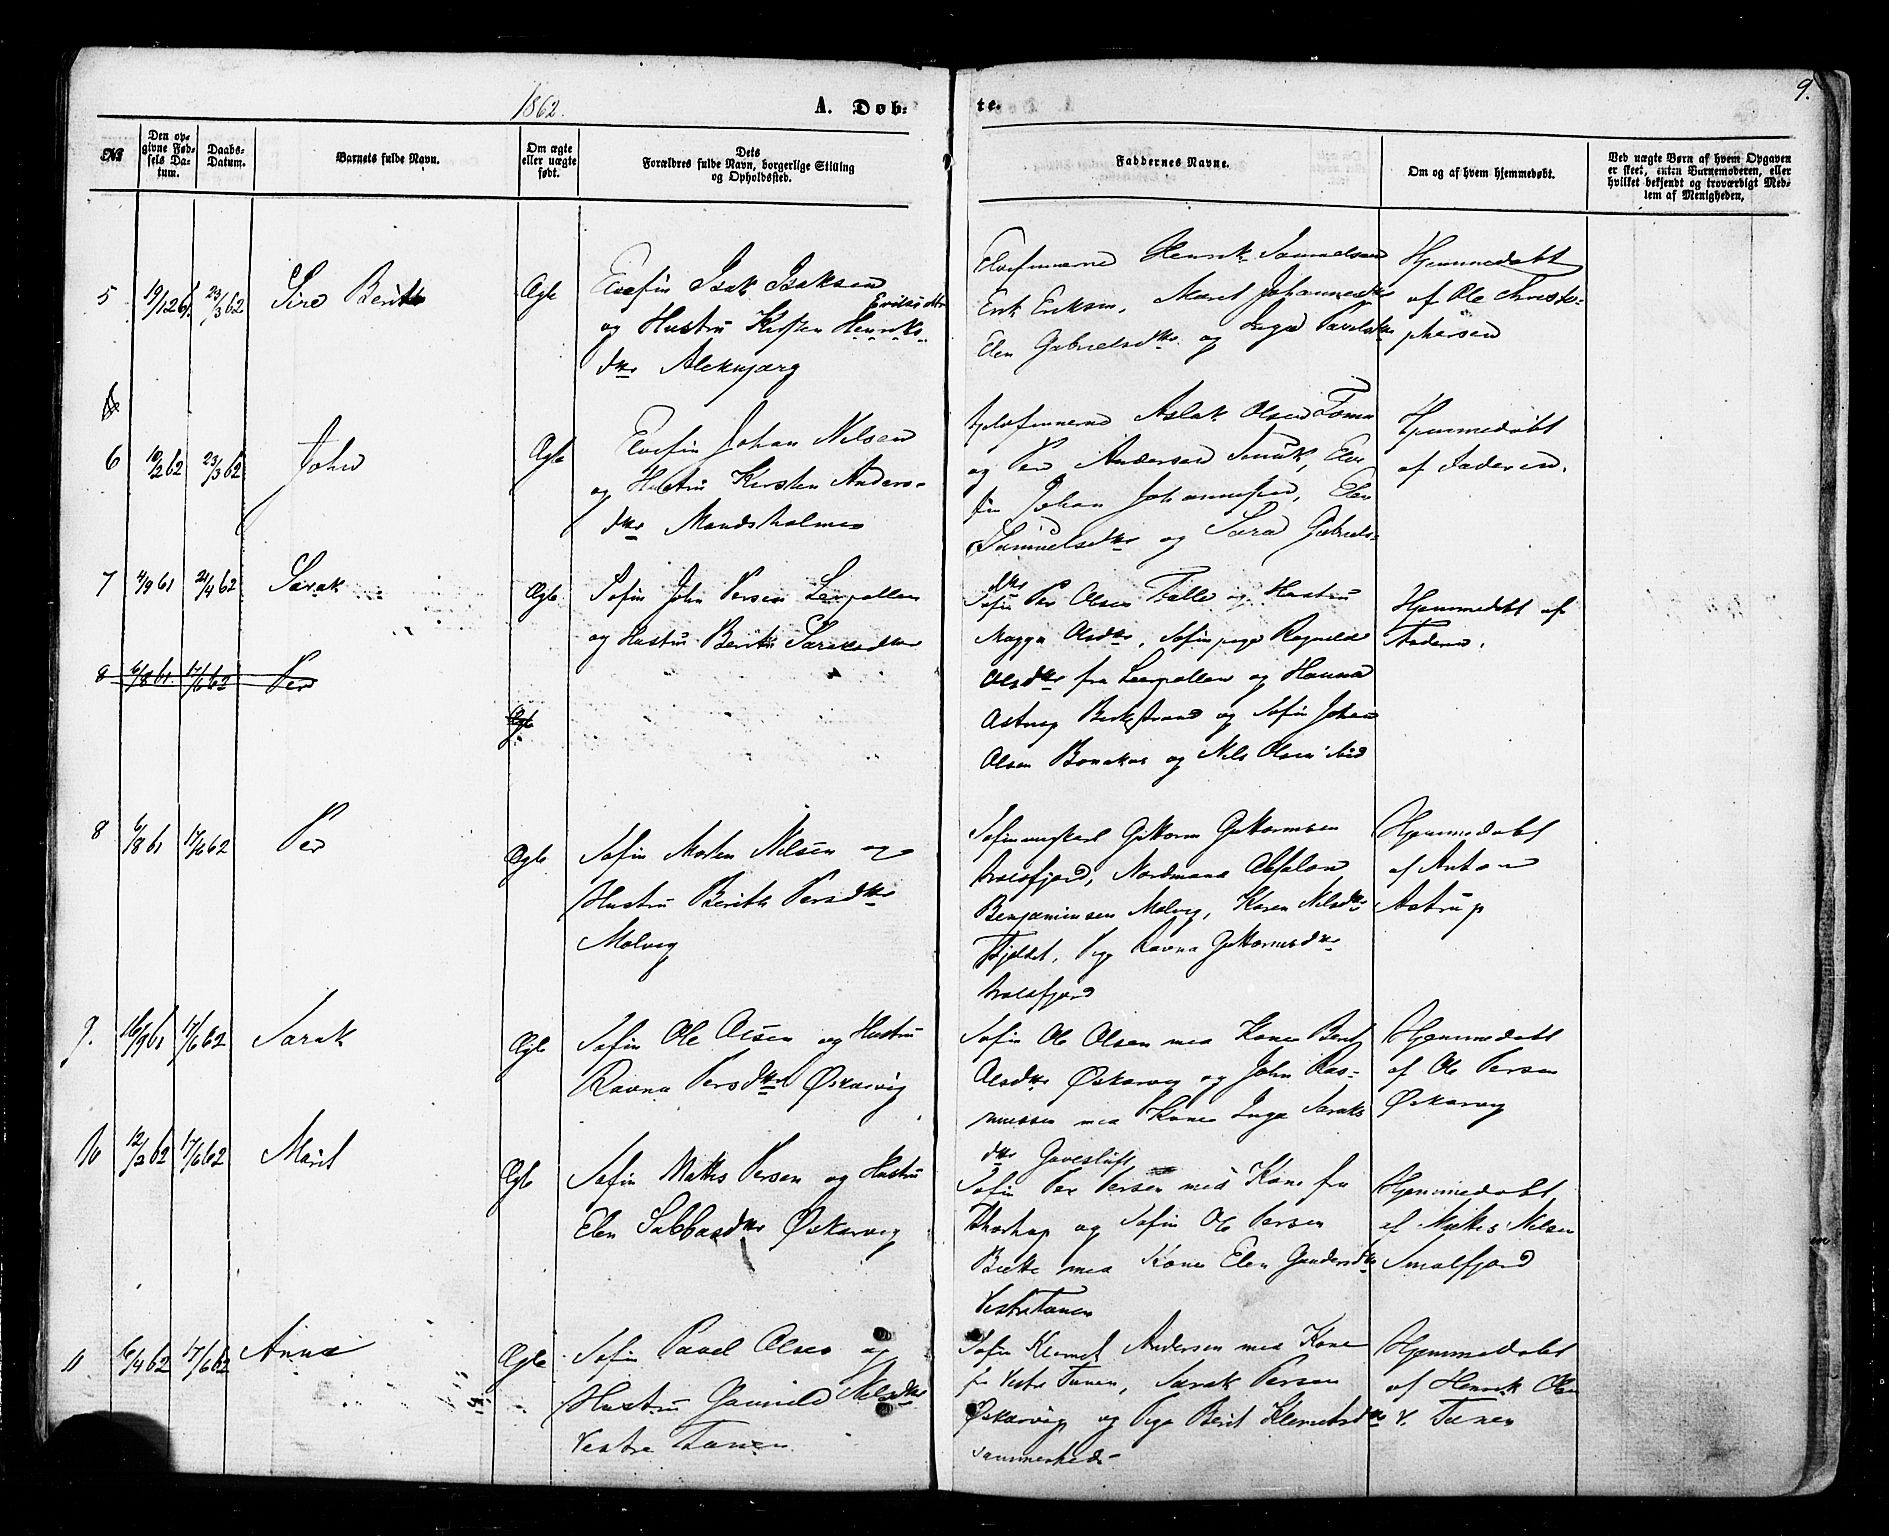 1862.
A. Døb-
te.
9.
№
Den op-
givne Fød-
sels Da-
tum.
Daabs-
Datum.
Barnets fulde Navn.
Om ægte
eller uægte
født.
Dets
Forældres fulde Navn, borgerlige Stilling
og Opholdssted.
Faddernes Navne.
Om og af hvem hjemmedøbt.
Ved uægte Børn af hvem Opgaven
er skeet, enten Barnemoderen, eller
hvilket bekjendt og troværdigt Med-
lem af Menigheden.
5 19/12 61 23/3 62 Sire Berith Ægte
Elvefin Isak Isaksen
og Hustru Kirsten Henriks-
dtr Aleknjarg
Elvefinnerne Henrik Samuelsen
Erik Eriksen, Marit Johannesdtr
Elen Gabrielsdtr og Inga Paulsdtr
Hjemmedøbt
af Ole Christo-
phersen
6 10/2 62 23/3 62 John Ægte
Elvefin Johan Nilsen
og Hustru Kirsten Anders-
dtr Mandsholmen
Elvefinnerne Aslak Olsen
og Per Andersen Smuk, Elve
fin Johan Johannesen, Elen
Samuelsdtr og Sara Gabriels-
dtr
Hjemmedøbt
af Faderen.
7 4/9 61 21/4 62 Sarak Ægte
Søfin John Persen Leerpollen
og Hustru Berith Saraksdtr
Søfin Per Olsen Fælles og Hustru
Magga Olsdtr, Søfinpige Ragnilde
Olsdtr fra Leerpollen og Hanna
Astrup Birkestrand og Søfin Johan
Olsen Bonakas og Nils Olsen ibid
Hjemmedøbt af
Faderen.
8 6/8 61 17/6 62 Per
Ægte
8 6/8 61 17/6 62 Per Ægte
Søfin Morten Nilsen og
Hustru Berith Persdtr
Molvig
Søfinungkarl Guttorm Guttormsen
Nordmand Absalon
Benjaminsen Molvig, Karen Nilsdtr
Fjeldet, Pige Ravna Guttormsdtr
Hjemmedøbt
af Anton
Astrup
9. 16/9 61 17/6 62 Sarak Ægte
Søfin Ole Olsen og Hustru
Ravna Persdtr Øskarvig
Søfin Ole Olsen med Kone Berit
Olsdtr Øskarvig og John Ras-
mussen med Kone Inga Saraks
dtr Gavesluft
Hjemmedøbt
af Ole Persen
Øskarvig
10 12/2 62 17/6 62 Marit Ægte
Søfin Mathis Persen og Hustru
Elen Sabbasdtr Øskarvig
Søfin Per Persen med Kone fra
og Søfin Ole Persen
med Kone Elen Gundersdtr
Vestre Tanen
Hjemmedøbt
af Mathis Nilsen
Smalfjord
11 6/4 62 17/6 62 Anna Ægte
Søfin Povel Olsen og
Hustru Gunild Nilsdtr
Vestre Tanen
Søfin Klemet Andersen med Kone
fr Vestre Tanen, Sarak Persen
Øskarvig og Pige Berit Klemetsdtr
sammesteds
Hjemmedøbt
af Henrik Olsen
V. Tanen